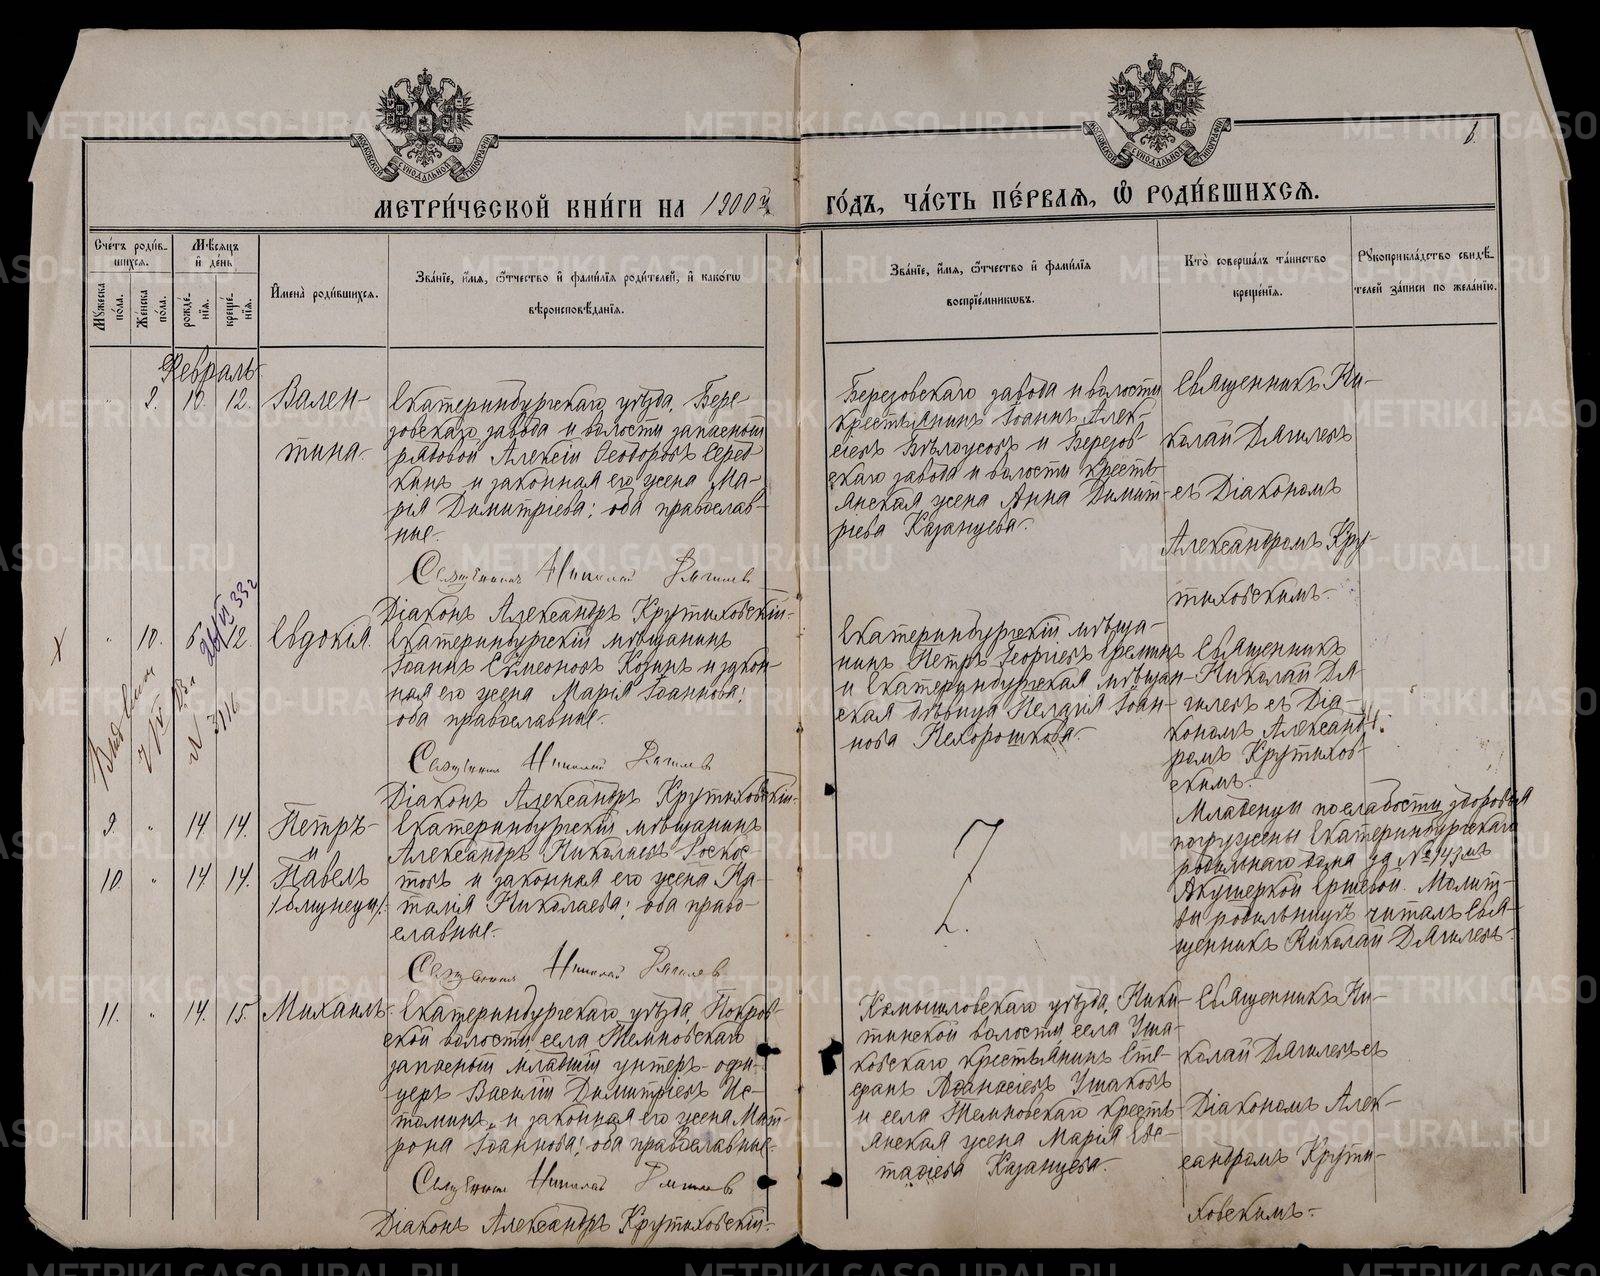 МЕТРИ́ЧЕСКОЙ КНИ́ГИ НА 1900й
ГО́ДЪ, ЧА́СТЬ ПЕ́РВАЯ, Ѿ РОДИ́ВШИХСЯ.
6.
Сче́тъ роди́в-
шихся.
Мѣ́сяцъ
и де́нь
Мꙋжеска
по́ла.
Же́нска
по́ла.
рожде́-
нїя.
креще́-
нїя.
И́мена роди́вшихся.
Зва́нїе, и́мя, ѻ҆́тчество и фами́лїя роди́телей, и како́гѡ
вѣроисповѣ́данїя.
Зва́нїе, и́мя, ѻ҆́тчество и фами́лїя
воспрїе́мникѡвъ.
Кто̀ соверша́лъ та́инство
креще́нїя.
Рꙋкоприкла́дство свидѣ́-
телей за́писи по жела́нїю.
Февраль
" 9. 10. 12.
Вален-
тина.
Екатеринбургскаго уѣзда, Бере-
зовскаго завода и волости запасный
рядовой Алексій Ѳеодоровъ Серед-
кинъ и законная его жена Ма-
рія Димитріева; оба православ-
ные.
Священникъ Николай Дягилев
Діаконъ Александръ Крутиховскій.
Березовскаго завода и волости
крестьянинъ Іоаннъ Алек-
сіевъ Бѣлоусовъ и Березов-
скаго завода и волости кресть-
янская жена Анна Димит-
ріева Казанцева.
Священникъ Ни-
колай Дягилевъ
съ Діакономъ
Александромъ Кру-
тиховскимъ.
" 10. 5. 12.
Евдокія.
Екатеринбургскій мѣщанинъ
Іоаннъ Симеоновъ Козинъ и закон-
ная его жена Марія Іоаннова;
оба православные.
Священникъ Николай Дягилев
Діаконъ Александръ Крутиховскій.
Екатеринбургскій мѣща-
нинъ Петръ Георгіевъ Ереминъ
и Екатеринбургская мѣщан-
ская дѣвица Пелагія Іоан-
нова Нехорошкова.
Священникъ
Николай Дя-
гилевъ съ Діа-
кономъ Александ-
ромъ Крутихов-
скимъ.
№ 3116
9. " 14. 14.
Петръ
и
10 " 14 14.
Павелъ
/близнецы/.
Екатеринбургскій мѣщанинъ
Александръ Николаевъ
и законная его жена На-
талія Николаева; оба право-
славные.
Священникъ Николай Дягилев
Младенцы по слабости здоровья
погружены Екатеринбургскаго
родильнаго дома за № 147мъ
Акушеркой Ершевой. Молит-
вы родильницѣ читалъ Свя-
щенникъ Николай Дягилевъ.
11. " 14. 15.
Михаилъ.
Екатеринбургскаго уѣзда, Покров-
ской волости, села Темновскаго
запасный младшій унтеръ-офи-
церъ Василій Димитріевъ Ис-
томинъ и законная его жена Мат-
рона Іоаннова; оба православные.
Священникъ Николай Дягилев
Діаконъ Александръ Крутиховскій.
Камышловскаго уѣзда, Ники-
тинской волости, села Уша-
ковскаго крестьянинъ Сте-
фанъ Аѳанасіевъ Ушаковъ
и села Темновскаго кресть-
янская жена Марія Евс-
тафіева Казанцева.
Священникъ Ни-
колай Дягилевъ съ
Діакономъ Алек-
сандромъ Крути-
ховскимъ.